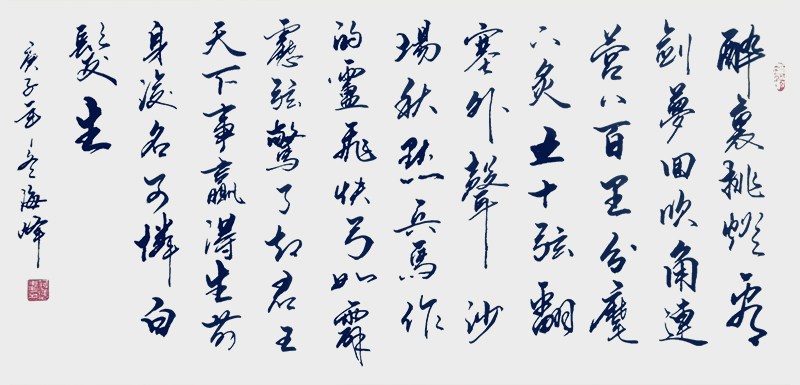 醉裏挑燈看
劍夢回吹角連
營八百里分麾
下炙五十弦翻
塞外聲沙
場秋點兵馬作
的盧飛快弓如霹
靂弦驚了却君王
天下事贏得生前
身後名可憐白
髮生
庚子海峰